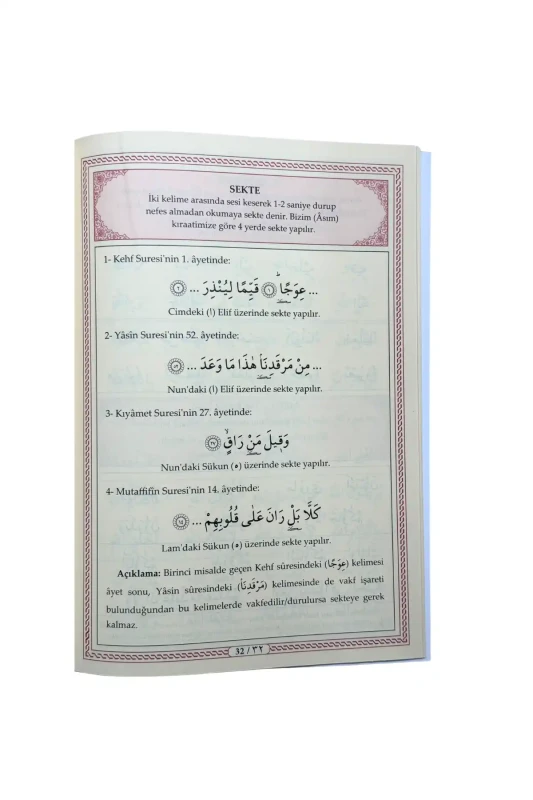 SEKTE
İki kelime arasında sesi keserek 1-2 saniye durup
nefes almadan okumaya sekte denir. Bizim (Âsım)
kıraatimize göre 4 yerde sekte yapılır.
1- Kehf Suresi'nin 1. âyetinde:
... عِوَجًا ۜ ﴿١﴾ قَيِّمًا لِيُنْذِرَ ... ﴿٢﴾
Cimdeki (ا) Elif üzerinde sekte yapılır.
2- Yâsîn Suresi'nin 52. âyetinde:
... مِنْ مَرْقَدِنَاۢ هٰذَا مَا وَعَدَ ... ﴿٥٢﴾
Nun'daki (ا) Elif üzerinde sekte yapılır.
3- Kıyâmet Suresi'nin 27. âyetinde:
وَق۪يلَ مَنْ رَاقٍۙ ﴿٢٧﴾
Nun'daki Sükun (ه) üzerinde sekte yapılır.
4- Mutaffifîn Suresi'nin 14. âyetinde:
كَلَّا بَلْ رَانَ عَلٰى قُلُوبِهِمْ ... ﴿١٤﴾
Lam'daki Sükun (ه) üzerinde sekte yapılır.
Açıklama: Birinci misalde geçen Kehf sûresindeki (عِوَجًا) kelimesi
âyet sonu, Yâsin sûresindeki (مَرْقَدِنَا) kelimesinde de vakf işareti
bulunduğundan bu kelimelerde vakfedilir/durulursa sekteye gerek
kalmaz.
32 / ٣٢